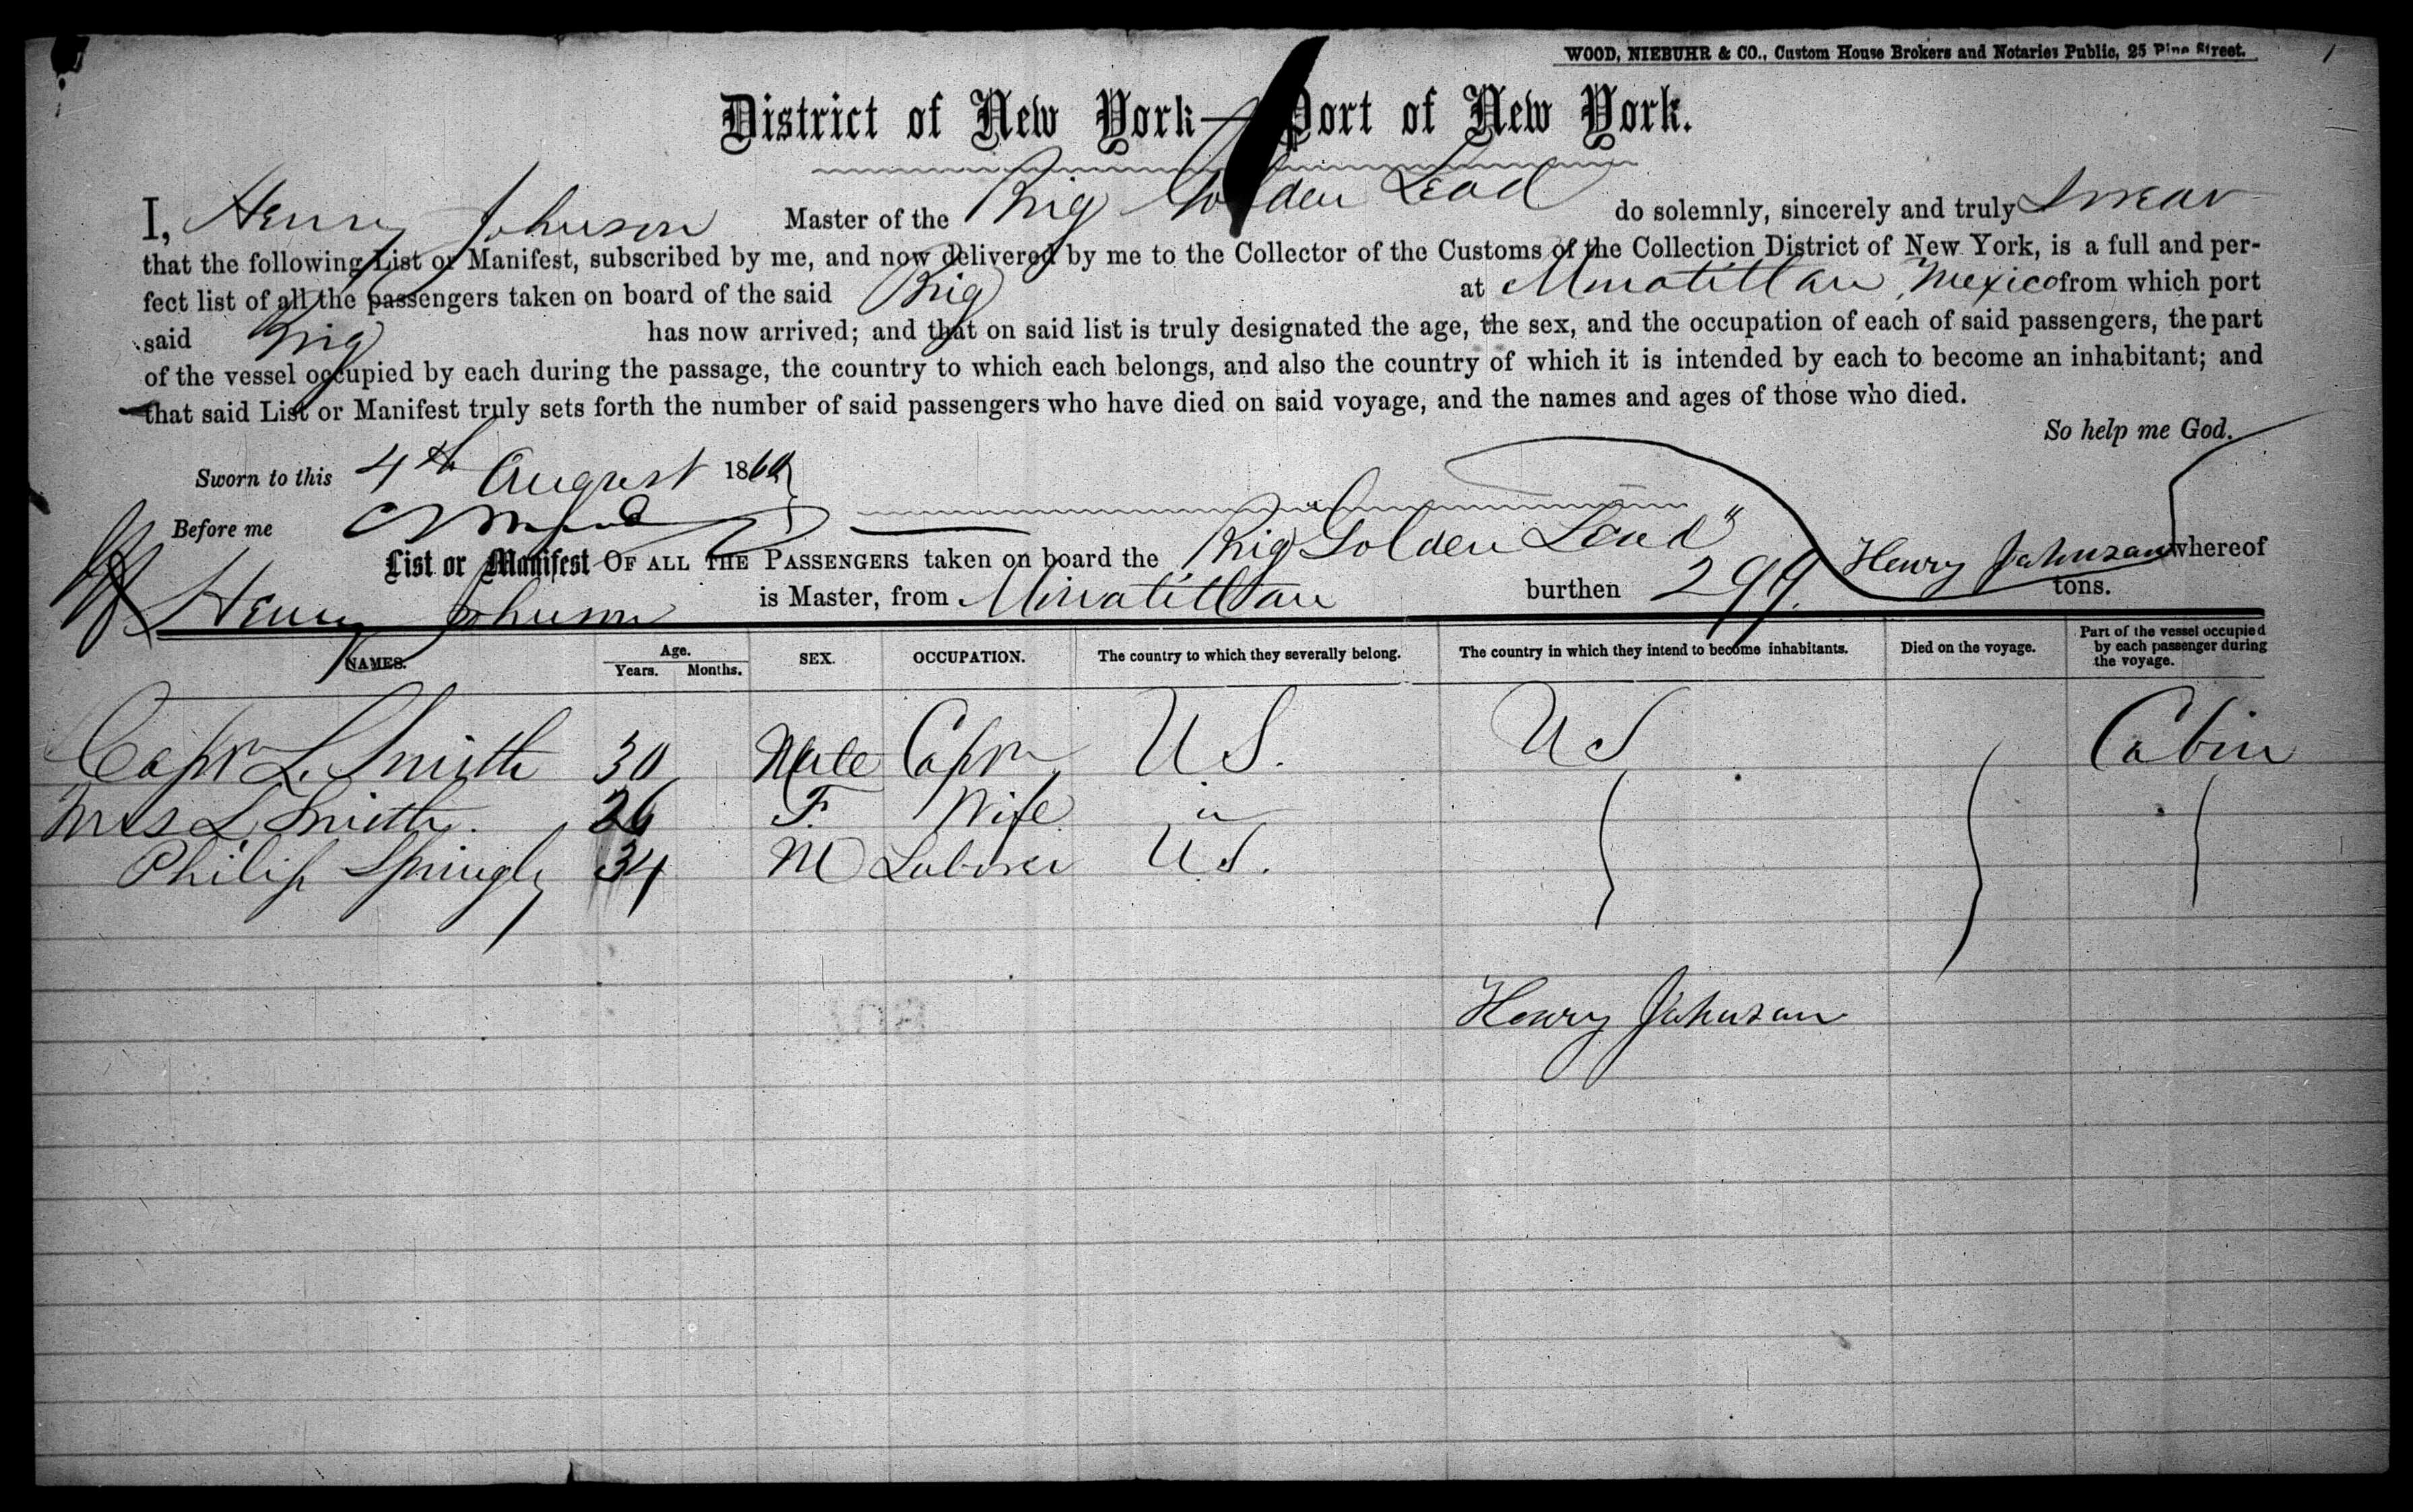 WOOD, NIEBUHR & CO., Custom House Brokers and Notaries Public, 25 Pine Street.
District of New York—Port of New York.
I, Henry Johnson Master of the Brig Golden Lead do solemnly, sincerely and truly Swear
that the following List or Manifest, subscribed by me, and now delivered by me to the Collector of the Customs of the Collection District of New York, is a full and per-
fect list of all the passengers taken on board of the said Brig at Minatitlan, Mexico from which port
said Brig has now arrived; and that on said list is truly designated the age, the sex, and the occupation of each of said passengers, the part
of the vessel occupied by each during the passage, the country to which each belongs, and also the country of which it is intended by each to become an inhabitant; and
that said List or Manifest truly sets forth the number of said passengers who have died on said voyage, and the names and ages of those who died.
So help me God.
Sworn to this 4th August 186
Before me
List or Manifest OF ALL THE PASSENGERS taken on board the Brig Golden Lead" Henry Johnson whereof
Henry Johnson is Master, from Minatitlan burthen 299 tons.
NAMES. Age. Years. Months. SEX. OCCUPATION. The country to which they severally belong. The country in which they intend to become inhabitants. Died on the voyage. Part of the vessel occupied by each passenger during the voyage.
Captn L. Smith 30 Male Captn U S. U S Cabin
Mrs L Smith. 26 F. Wife "
Philip 34 M Laborer U S.
Henry Johnson